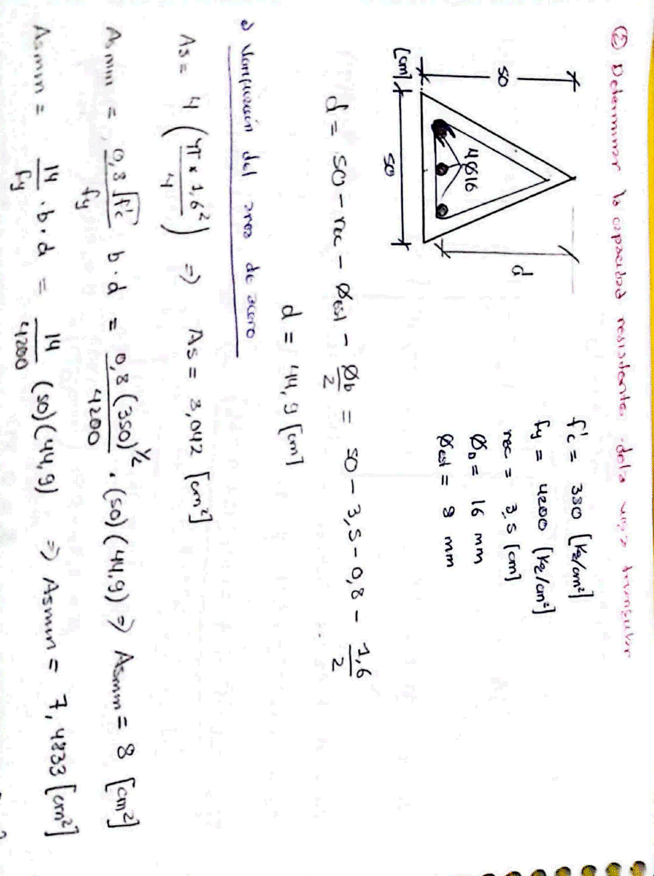 ② Determinar la capacidad resistente de la viga triangular
50
4Ø16
d
[cm]
50
f'c = 350 [kg/cm²]
fy = 4200 [kg/cm²]
rec = 3,5 [cm]
Øb = 16 mm
Øest = 8 mm
d = 50 - rec - Øest - Øb/2 = 50 - 3,5 - 0,8 - 1,6/2
d = 44,9 [cm]
a) Verificación del area de acero
As = 4 (π × 1,6²/4) ⇒ As = 8,042 [cm²]
Asmin = 0,8 √f'c/fy b·d = 0,8 (350)^1/2/4200 · (50)(44,9) ⇒ Asmin = 8 [cm²]
Asmin = 14/fy · b·d = 14/4200 (50)(44,9) ⇒ Asmin = 7,4833 [cm²]